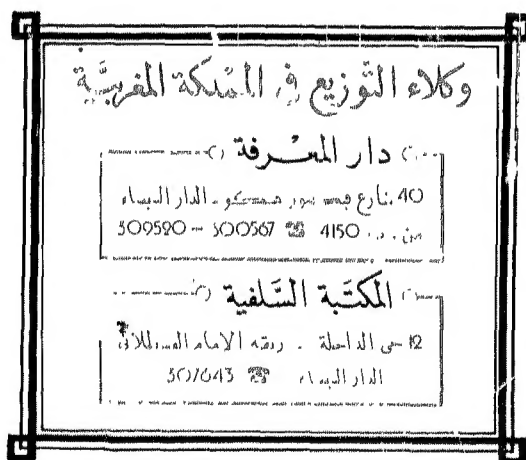 وكلاء التَّوزيع في المملكة المغربيَّة
دار المعْرفة
40 شارع فيكتور هيكو - الدار البيضاء
ص. ب. 4150 ☎ 300567 - 309520
المكتَبة السَّلفية
12 حي الداخلة - زنقة الامام القسطلاني
الدار البيضاء ☎ 307643